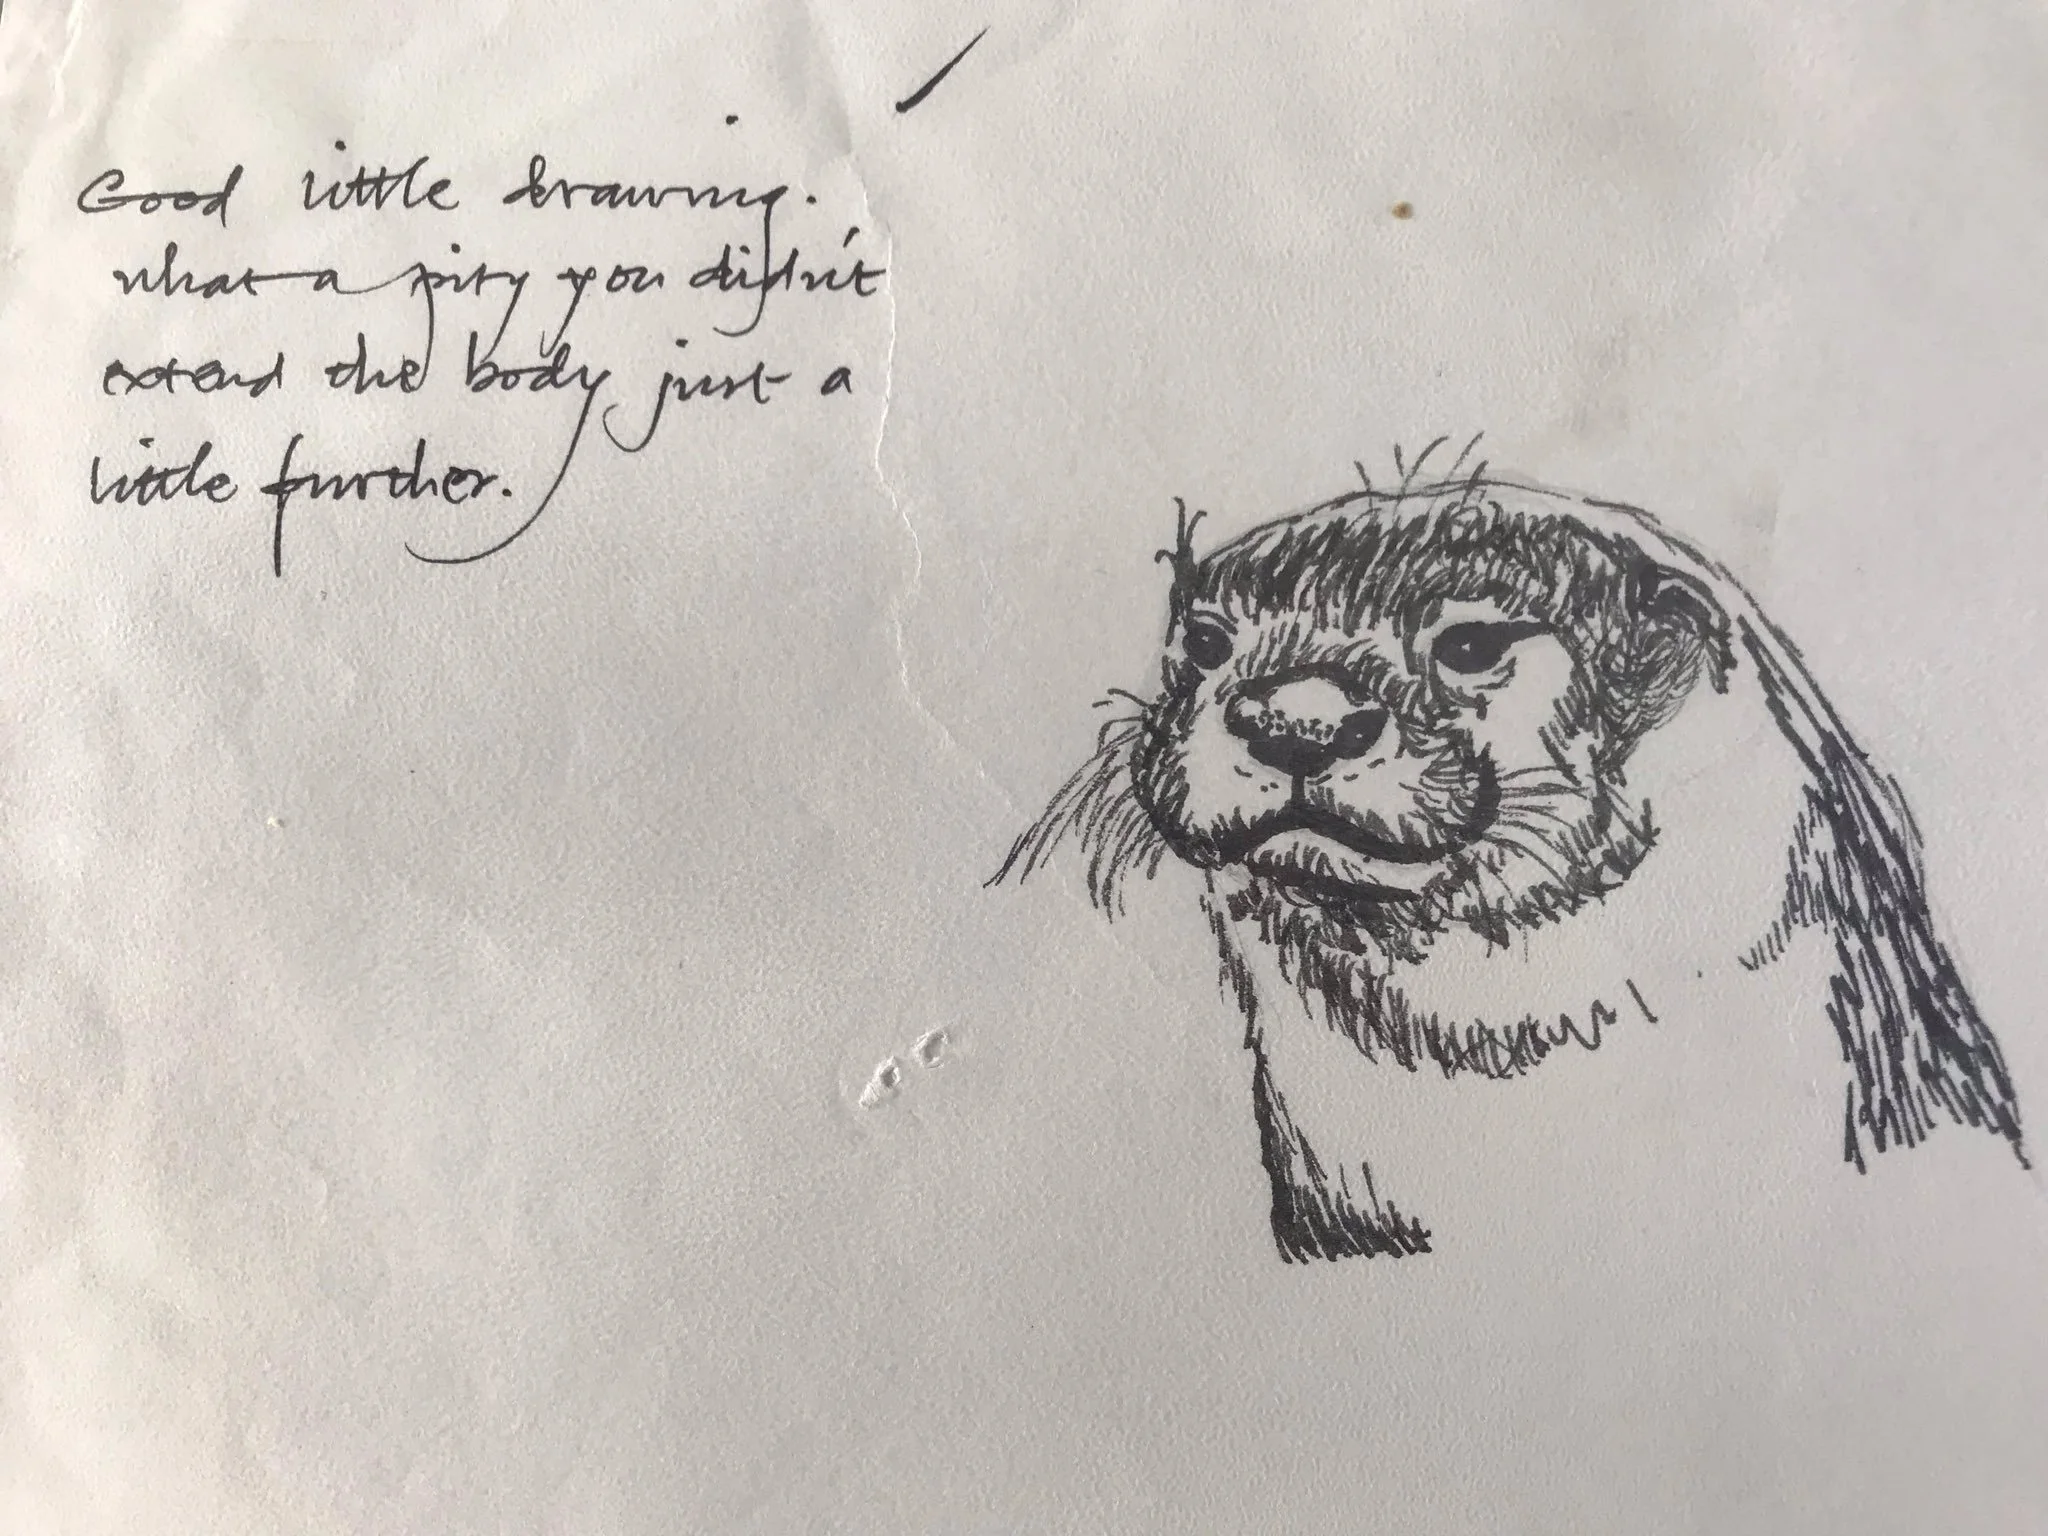 Good little drawing.
what a pity you didn't
extend the body just a
little further.